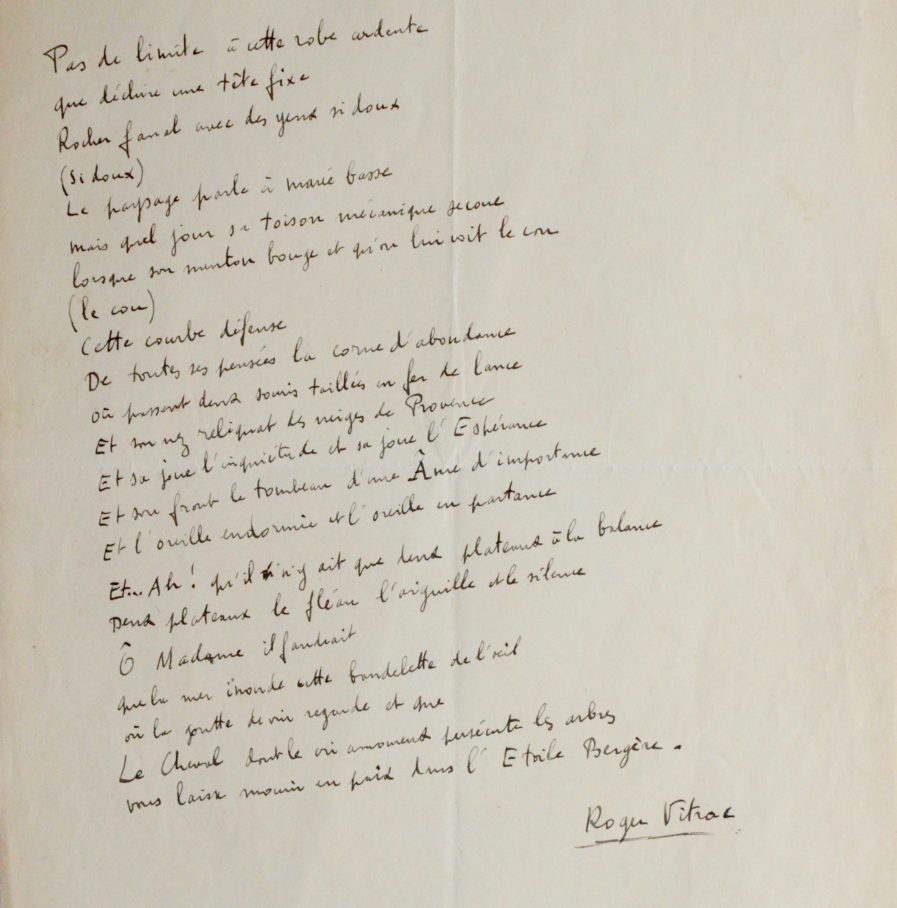 Pas de limite à cette robe ardente
que déchire une tête fixe
Rocher fanal avec des yeux si doux
(Si doux)
Le paysage parle à marée basse
mais quel jour sa toison mécanique secoue
lorsque son menton bouge et qu'on lui voit le cou
(le cou)
Cette courbe défense
De toutes ses pensées la corne d'abondance
où passent deux souris taillées en fer de lance
Et son nez reliquat des neiges de Provence
Et sa joue l'inquiétude et sa joue l'Espérance
Et son front le tombeau d'une Âme d'importance
Et l'oreille endormie et l'oreille en partance
Et... Ah! qu'il n'y ait que deux plateaux à la balance
Deux plateaux le fléau l'aiguille et le silence
Ô Madame il faudrait
que la mer inonde cette bandelette de l'œil
où la goutte de vin regarde et que
Le Cheval dont le cri amoureux persécute les arbres
vous laisse mourir en paix dans l'Etoile Bergère.
Roger Vitrac